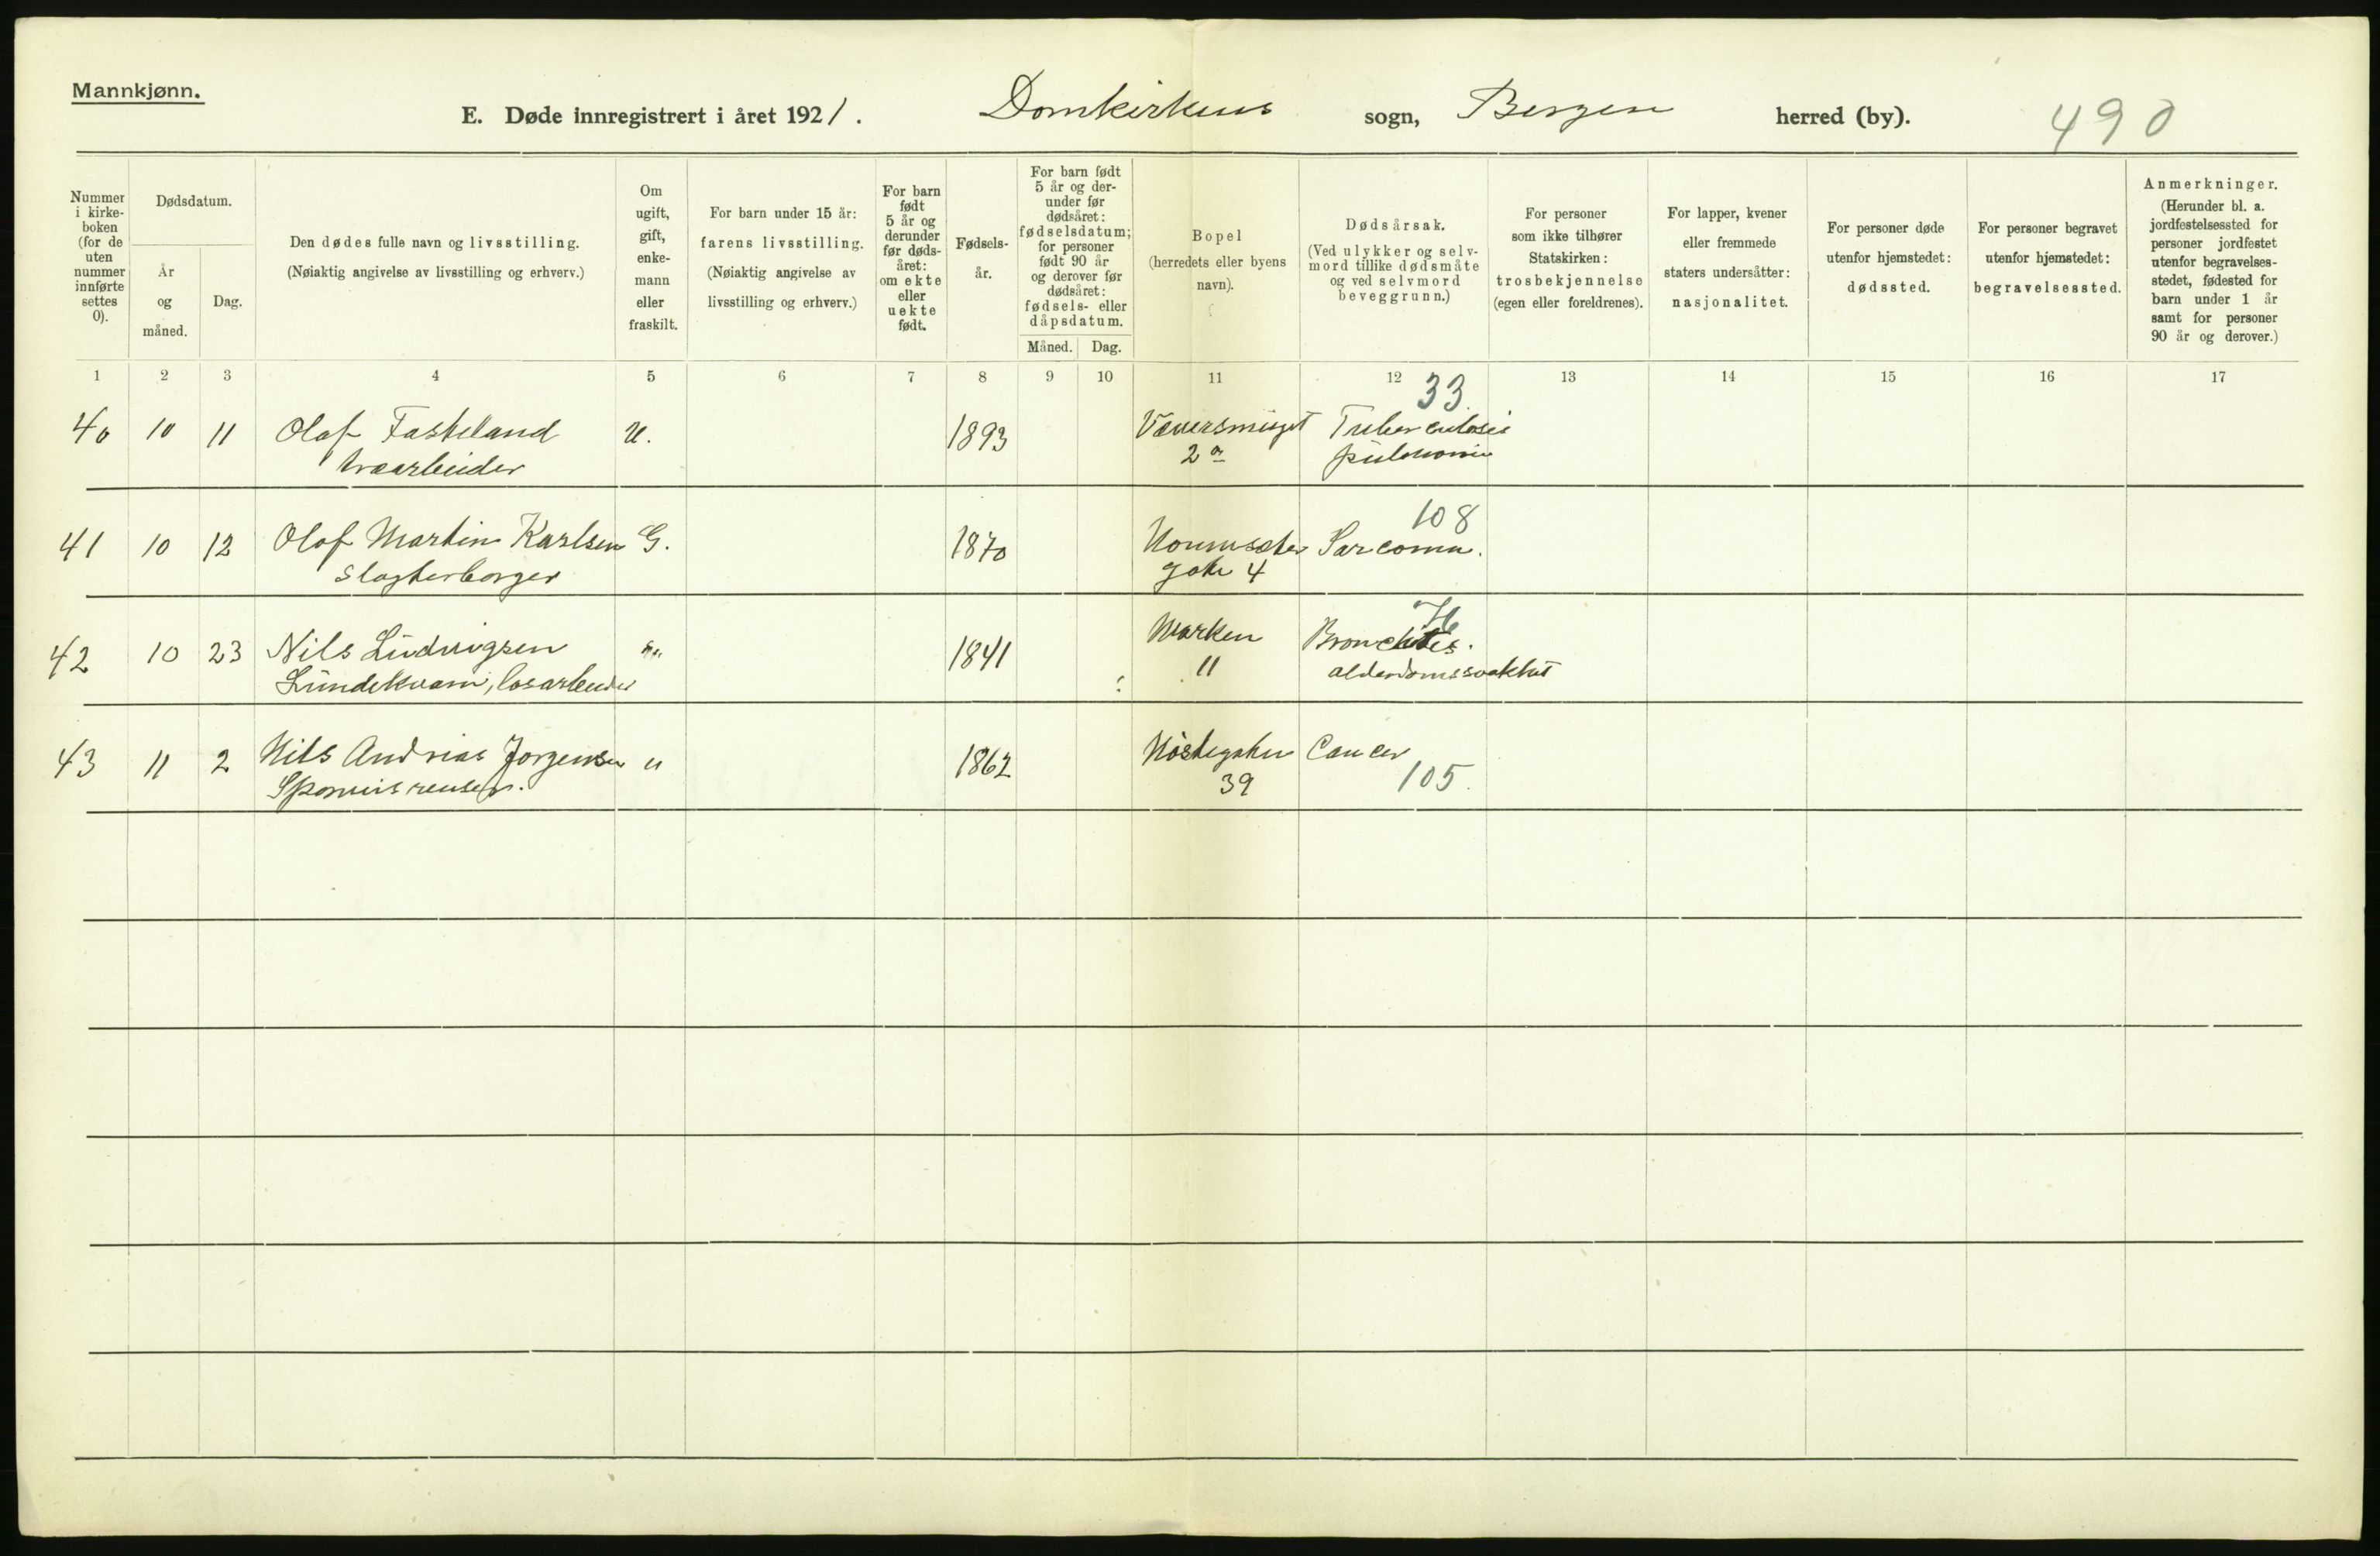 Mannkjønn.
E. Døde innregistrert i året 1921. Domkirkens sogn, Bergen herred (by). 490
Nummer i kirke- boken (for de uten nummer innførte settes 0).
Dødsdatum.
År og måned.
Dag.
Den dødes fulle navn og livsstilling.
(Nøiaktig angivelse av livsstilling og erhverv.)
Om ugift, gift, enke- mann eller fraskilt.
For barn under 15 år:
farens livsstilling.
(Nøiaktig angivelse av
livsstilling og erhverv.)
For barn født 5 år og derunder før døds- året: om ekte eller uekte født.
Fødsels- år.
For barn født 5 år og der- under før dødsåret: fødselsdatum; for personer født 90 år og derover før dødsåret: fødsels- eller dåpsdatum.
Måned. Dag.
Bopel
(herredets eller byens
navn).
Dødsårsak.
(Ved ulykker og selv-
mord tillike dødsmåte
og ved selvmord
beveggrunn.)
For personer
som ikke tilhører
Statskirken:
trosbekjennelse
(egen eller foreldrenes).
For lapper, kvener
eller fremmede
staters undersåtter:
nasjonalitet.
For personer døde
utenfor hjemstedet:
dødssted.
For personer begravet
utenfor hjemstedet:
begravelsessted.
Anmerkninger.
(Herunder bl. a.
jordfestelsessted for
personer jordfestet
utenfor begravelses-
stedet, fødested for
barn under 1 år
samt for personer
90 år og derover.)
1 2 3 4 5 6 7 8 9 10 11 12 13 14 15 16 17
33
40 10 11 Olaf Fasteland U. 1893 Tuberculosis
træarbeider 2 a pulmonum
108
41 10 12 Olaf Martin Karlsen G. 1870 Sarcoma.
slagterborger gate 4
42 10 23 Nils Ludvigsen " 1841 Marken Bronchitis.
Lundekvam, løsarbeider 11 alderdomssvakhet
43 11 2 Nils Andreas Jørgensen " 1862 Nøstegaten Cancer
39 105.